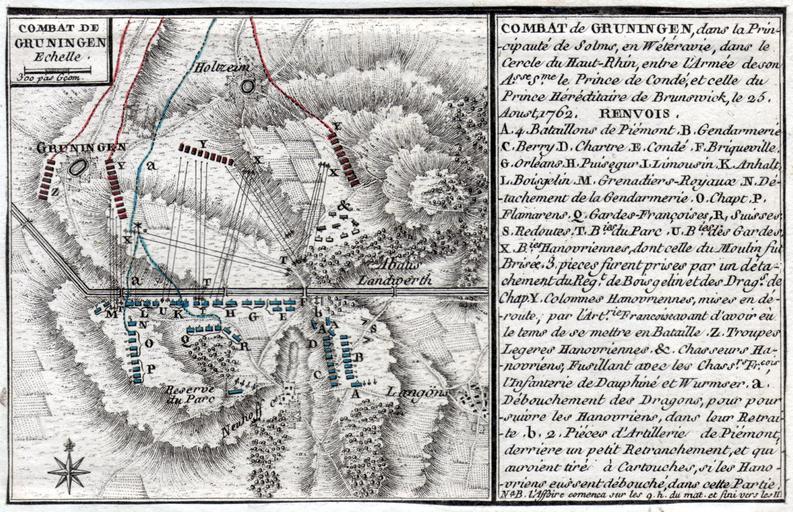 COMBAT DE
GRUNINGEN
Echelle.
300 pas Geom.
Holtzeim
GRUNINGEN
Y
Y
Y
Z
X
X
X
X
a
a
&
T
T
Abatis
Landwerth
M
L
U
K
H
G
F
E
N
O
P
Q
R
b
A
A
B
D
C
S
Reserve
du Parc
Neuhoff
Langöns
COMBAT de GRUNINGEN, dans la Prin-
cipauté de Solms, en Wétéravie, dans le
Cercle du Haut-Rhin, entre l'Armée de son
Asse. Sme. le Prince de Condé, et celle du
Prince Héréditaire de Brunswick, le 25.
Aoust. 1762. RENVOIS.
A. 4. Bataillons de Piémont. B. Gendarmerie
C. Berry D. Chartre. E. Condé. F. Briqueville.
G. Orléans. H. Puisegur. J. Limousin. K. Anhalt,
L. Boisgelin. M. Grenadiers-Royaux N. Dé-
-tachement de la Gendarmerie. O. Chapt. P.
Flamarens. Q. Gardes-Françoises, R, Suisses,
S. Redoutes, T. Bies du Parc. U. Bies des Gardes,
X. Bies Hanovriennes, dont celle du Moulin fut
Brisée. 3. pieces furent prises par un déta-
chement du Régt. de Boisgelin et des Drags. de
Chap. Y. Colomnes Hanovriennes, mises en de-
-route, par l'Artrie Francoise avant d'avoir eû
le tems de se mettre en Bataille. Z. Troupes
Legeres Hanovriennes. &. Chasseurs Ha-
novriens, Fusillant avec les Chassrs. Frcois,
l'Infanterie de Dauphiné et Wurmser. a.
Débouchement des Dragons, pour pour-
suivre les Hanovriens, dans leur Retrai-
-te. b. 2. Piéces d'Artillerie de Piémont,
derrière un petit Retranchement, et qui
auroient tiré à Cartouches, si les Hano-
vriens eussent débouché, dans cette Partie.
Na B. l'Affaire comença sur les 9. h. du mat. et fini vers les 11